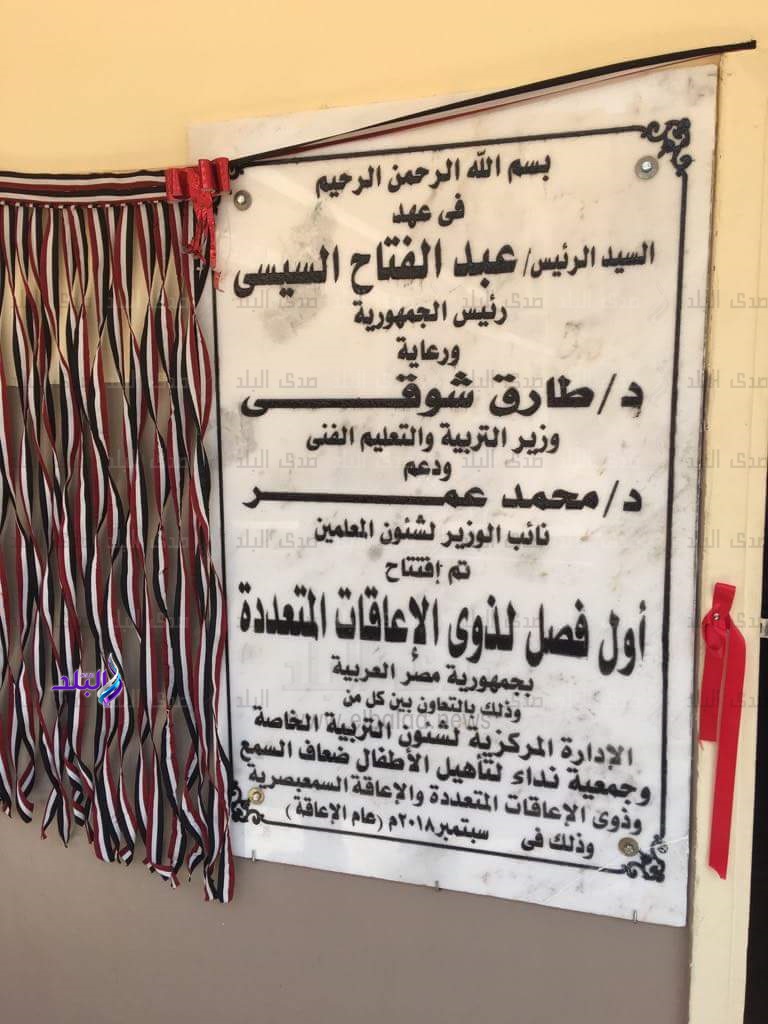 بسم الله الرحمن الرحيم
فى عهد
السيد الرئيس/ عبد الفتاح السيسى
رئيس الجمهورية
ورعاية
د/طارق شوقــــــى
وزير التربية والتعليم الفنى
ودعم
د/محمد عمــــــــر
نائب الوزير لشئون المعلمين
تم إفتتاح
أول فصل لذوى الإعاقات المتعددة
بجمهورية مصر العربية
وذلك بالتعاون بين كل من
الإدارة المركزية لشئون التربية الخاصة
وجمعية نداء لتأهيل الأطفال ضعاف السمع
وذوى الإعاقات المتعددة والإعاقة السمعبصرية
وذلك فى سبتمبر ٢٠١٨م (عام الإعاقة)
البلد
صدى البلد
elbalad.news